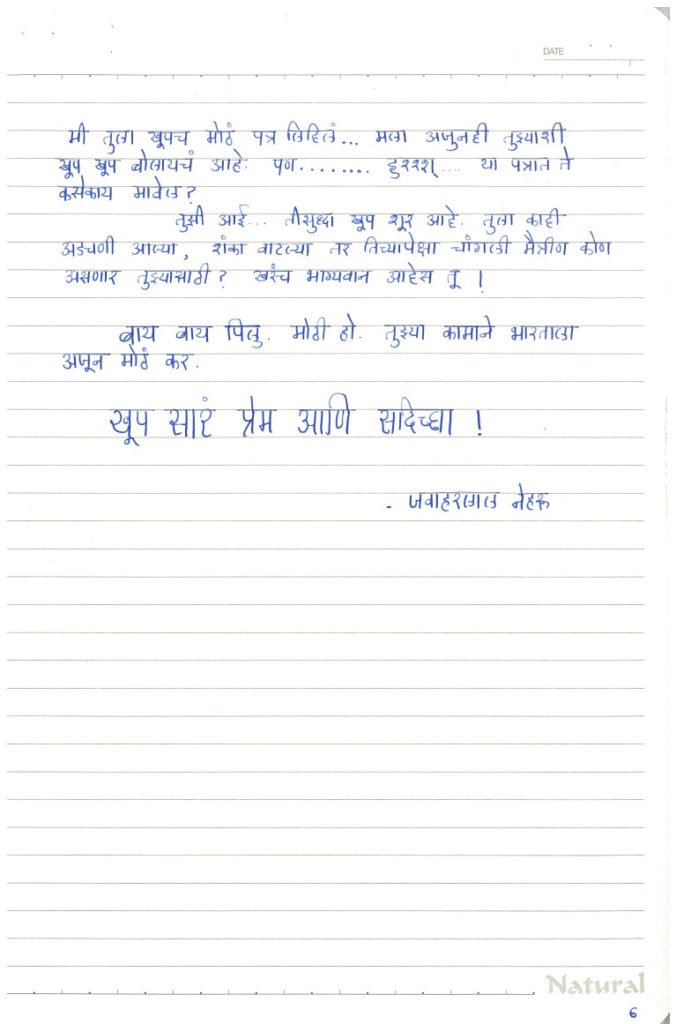 DATE
मी तुला खूपच मोठं पत्र लिहिलं... मला अजूनही तुझ्याशी
खूप खूप बोलायचं आहे. पण......... हुश्श्श्.... या पत्रात ते
कसेकाय मावेल?
तुझी आई... तीसुध्दा खूप शूर आहे. तुला काही
अडचणी आल्या, शंका वाटल्या तर तिच्यापेक्षा चांगली मैत्रीण कोण
असणार तुझ्यासाठी? खरंच भाग्यवान आहेस तू!
बाय बाय पिलु. मोठी हो. तुझ्या कामाने भारताला
अजून मोठं कर.
खूप सारं प्रेम आणि सदिच्छा!
- जवाहरलाल नेहरू
Natural
6